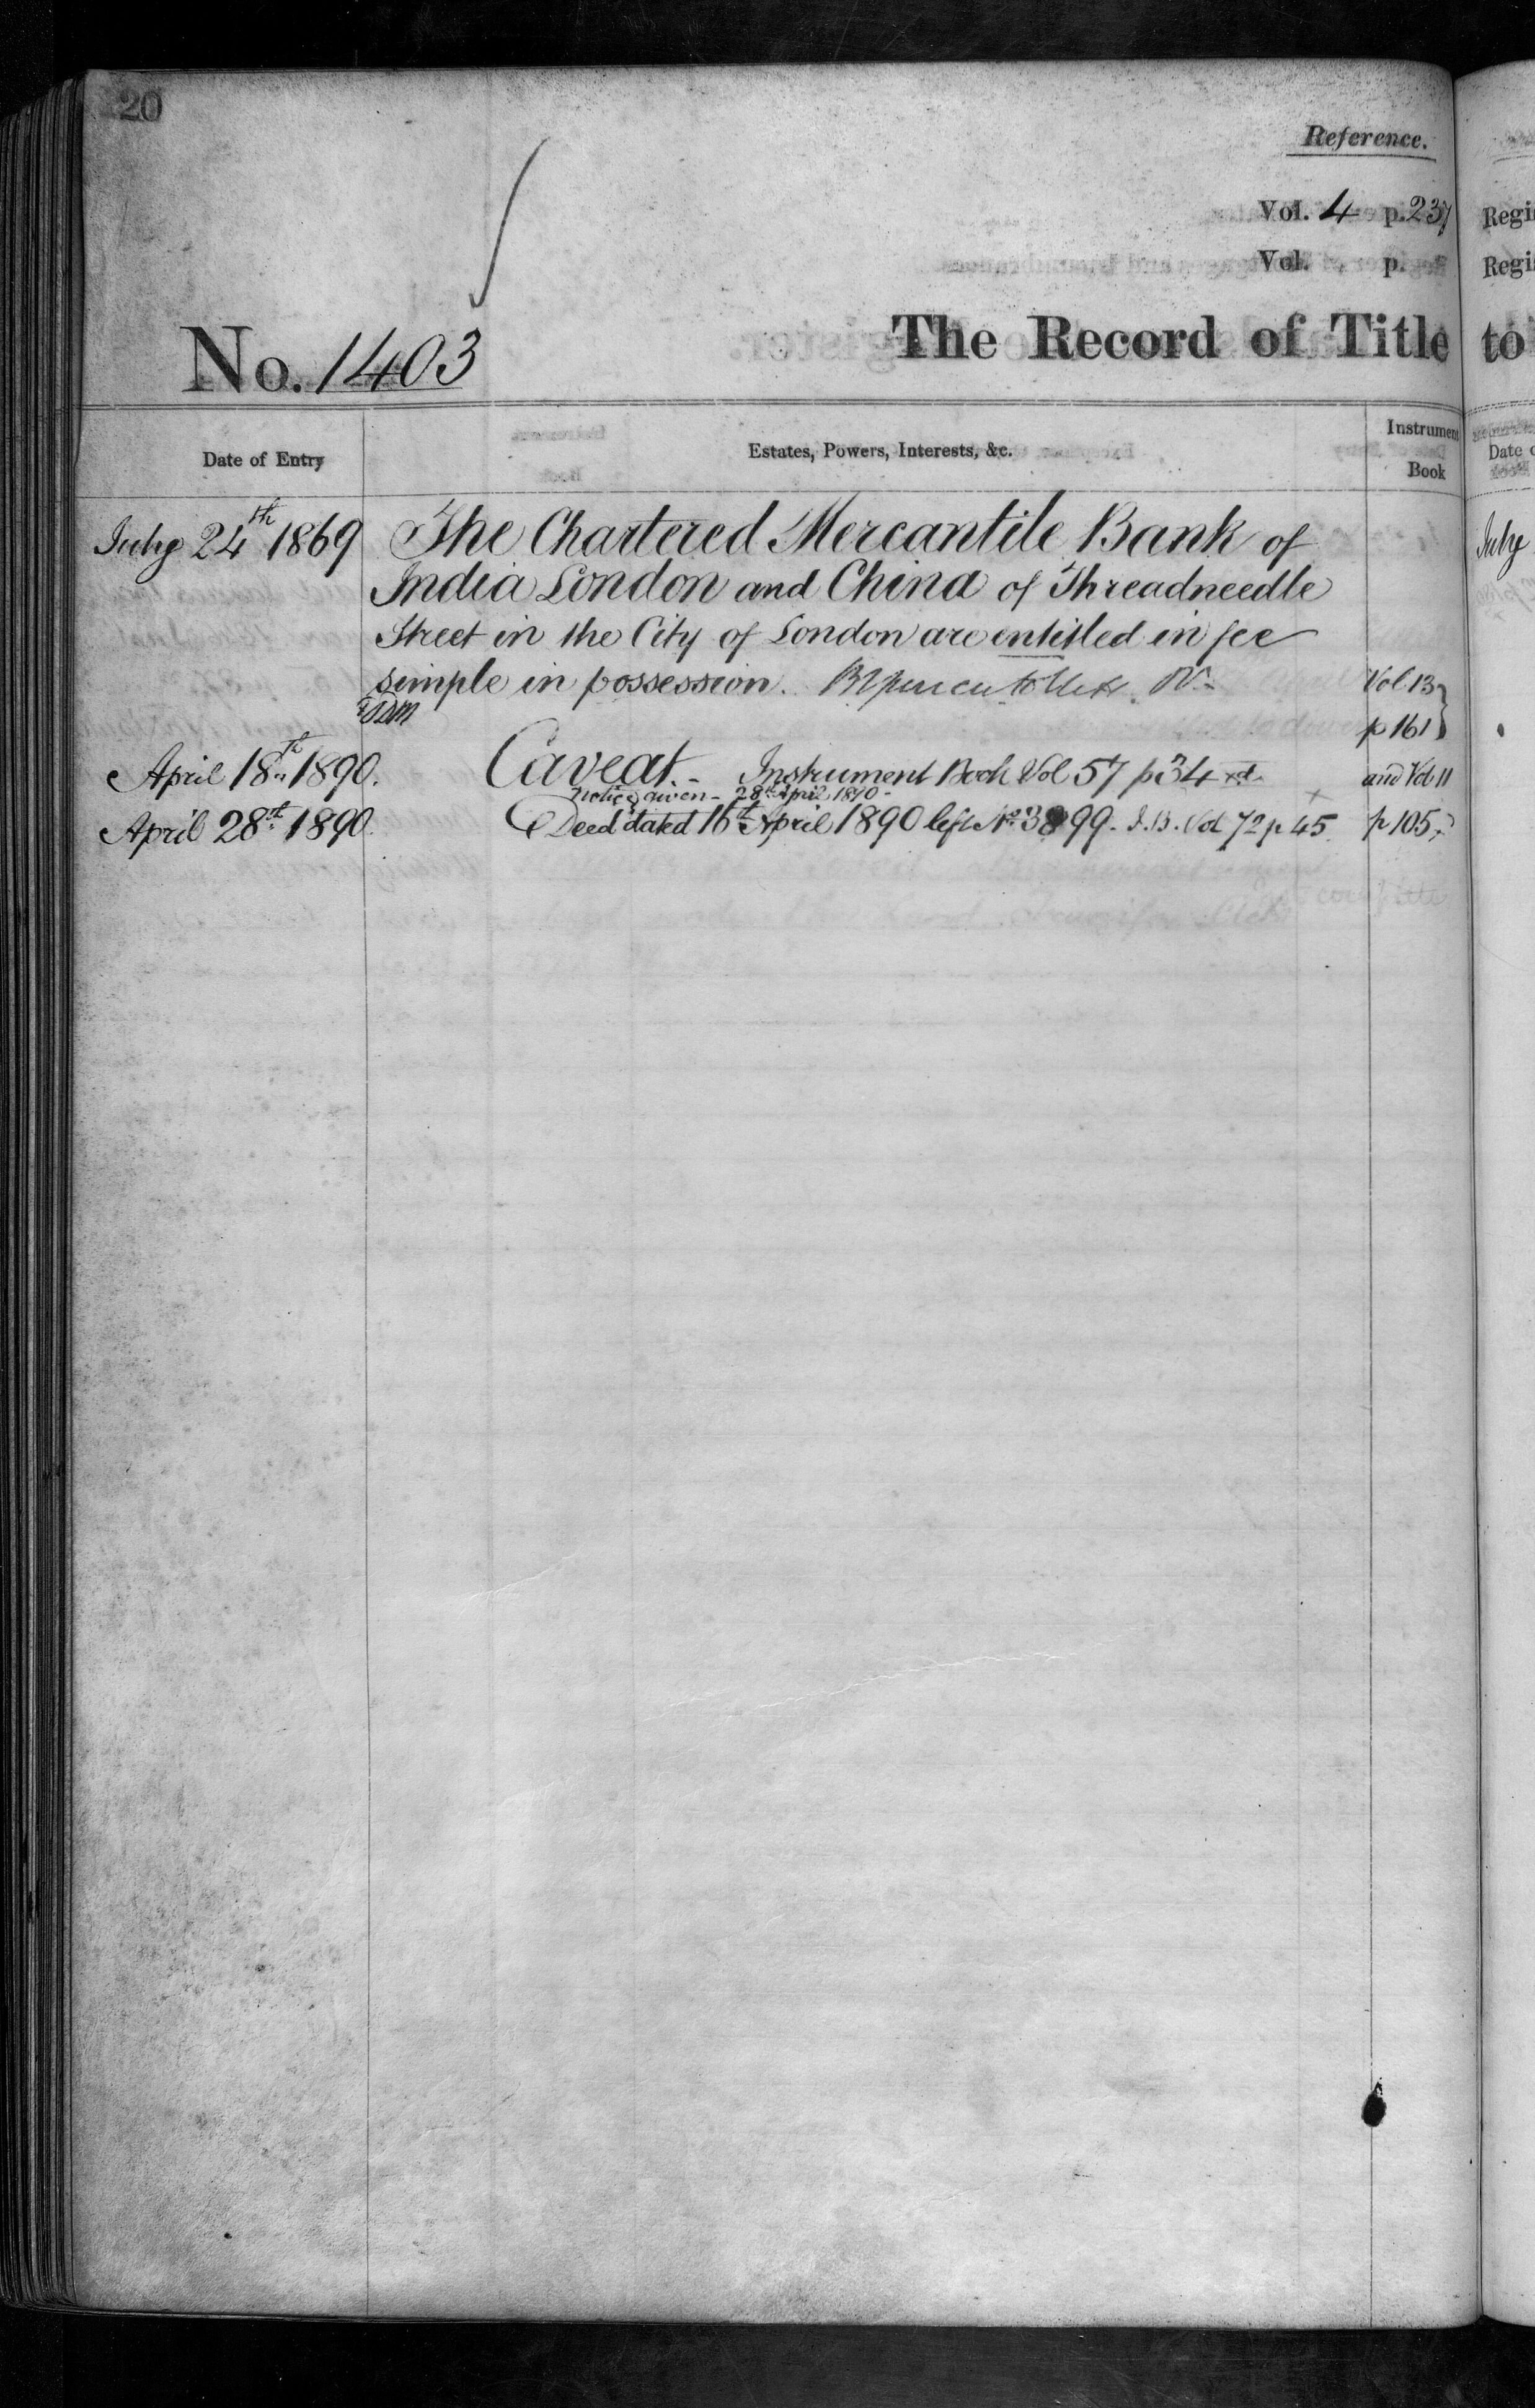 20
Reference.
Vol. 4 p. 237
Vol. p.
No. 1403
The Record of Title
Date of Entry
Estates, Powers, Interests, &c.
Instrument
Book
July 24th 1869
The Chartered Mercantile Bank of
India London and China of Threadneedle
Street in the City of London are entitled in fee
simple in possession.
Vol 13
p 161
April 18th 1890.
Caveat. - Instrument Book Vol 57 p 34
and Vol 11
notice given - 28th April 1890 -
April 28th 1890.
Deed dated 16th April 1890 left No 3899. I.B. Vol 72 p 45.
p 105
Regi
Regi
to
Date o
July